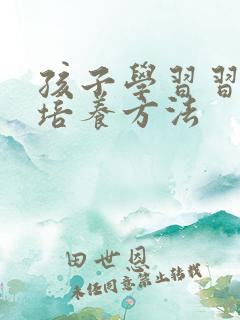 孩子學習習
培養方法
田世恩
未经同意禁止转载